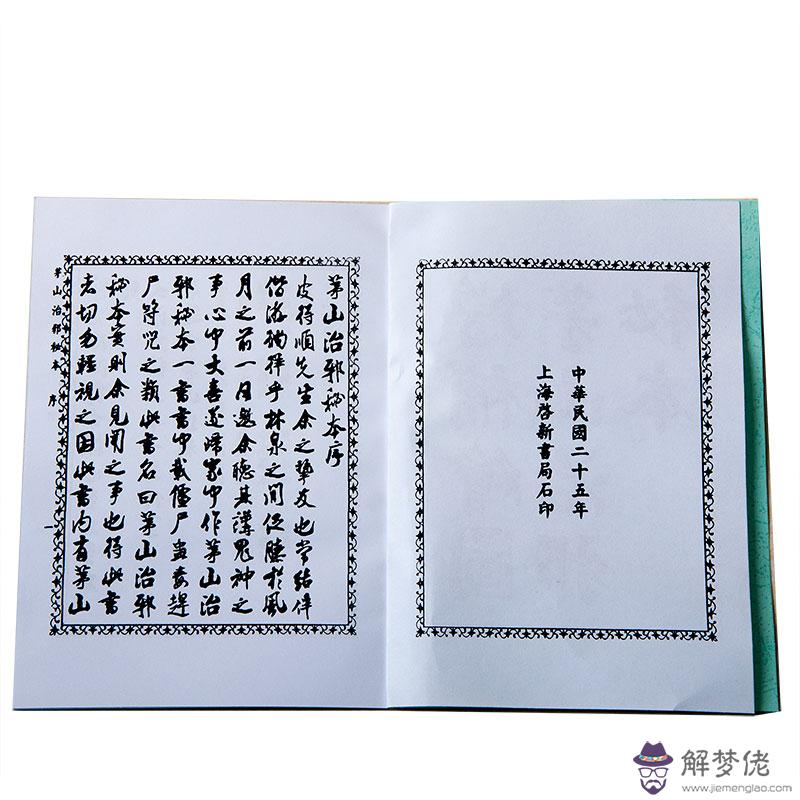 中華民國二十五年
上海啓新書局石印
茅山治邪秘本序
皮得順先生余之摯友也常結伴
偕游徜徉乎林泉之間促膝於風
月之前一日邀余聽其講鬼神之
事心中大喜遂歸家中作茅山治
邪秘本一書書中載僵尸蠱毒趕
尸符咒之類此書名曰茅山治邪
秘本實則余見聞之事也得此書
者切勿輕視之因此書內有茅山
茅山治邪秘本 序
一
解梦佬
www.jiemenglao.com